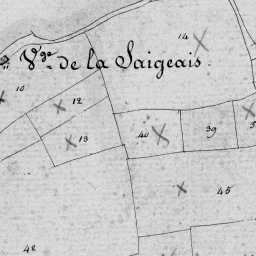 14
Vge de la Saigeais.
10
12
13
40
39
45
48